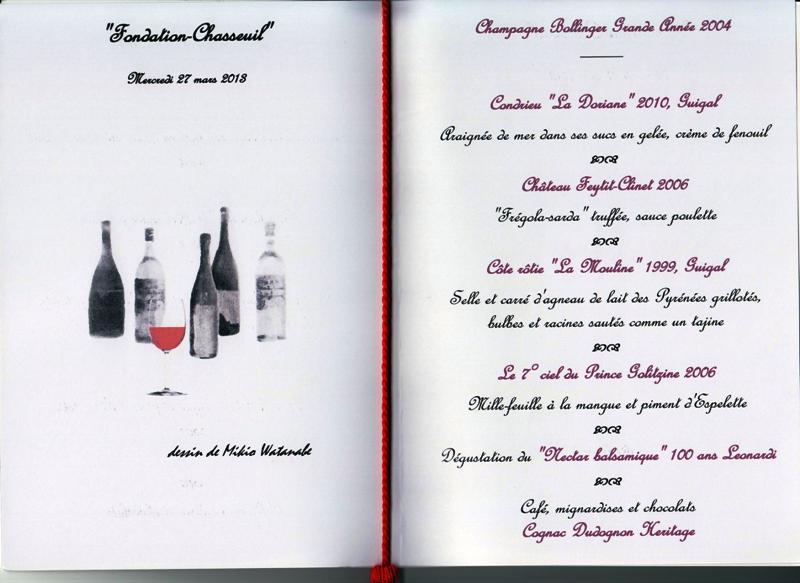 "Fondation-Chasseuil"
Mercredi 27 mars 2013
dessin de Mikio Watanabe
Champagne Bollinger Grande Année 2004
Condrieu "La Doriane" 2010, Guigal
Araignée de mer dans ses sucs en gelée, crème de fenouil
Château Feytit-Clinet 2006
"Frégola-sarda" truffée, sauce poulette
Côte rôtie "La Mouline" 1999, Guigal
Selle et carré d'agneau de lait des Pyrénées grillotés,
bulbes et racines sautés comme un tajine
Le 7° ciel du Prince Golitzine 2006
Mille-feuille à la mangue et piment d'Espelette
Dégustation du "Nectar balsamique" 100 ans Leonardi
Café, mignardises et chocolats
Cognac Dudognon Heritage